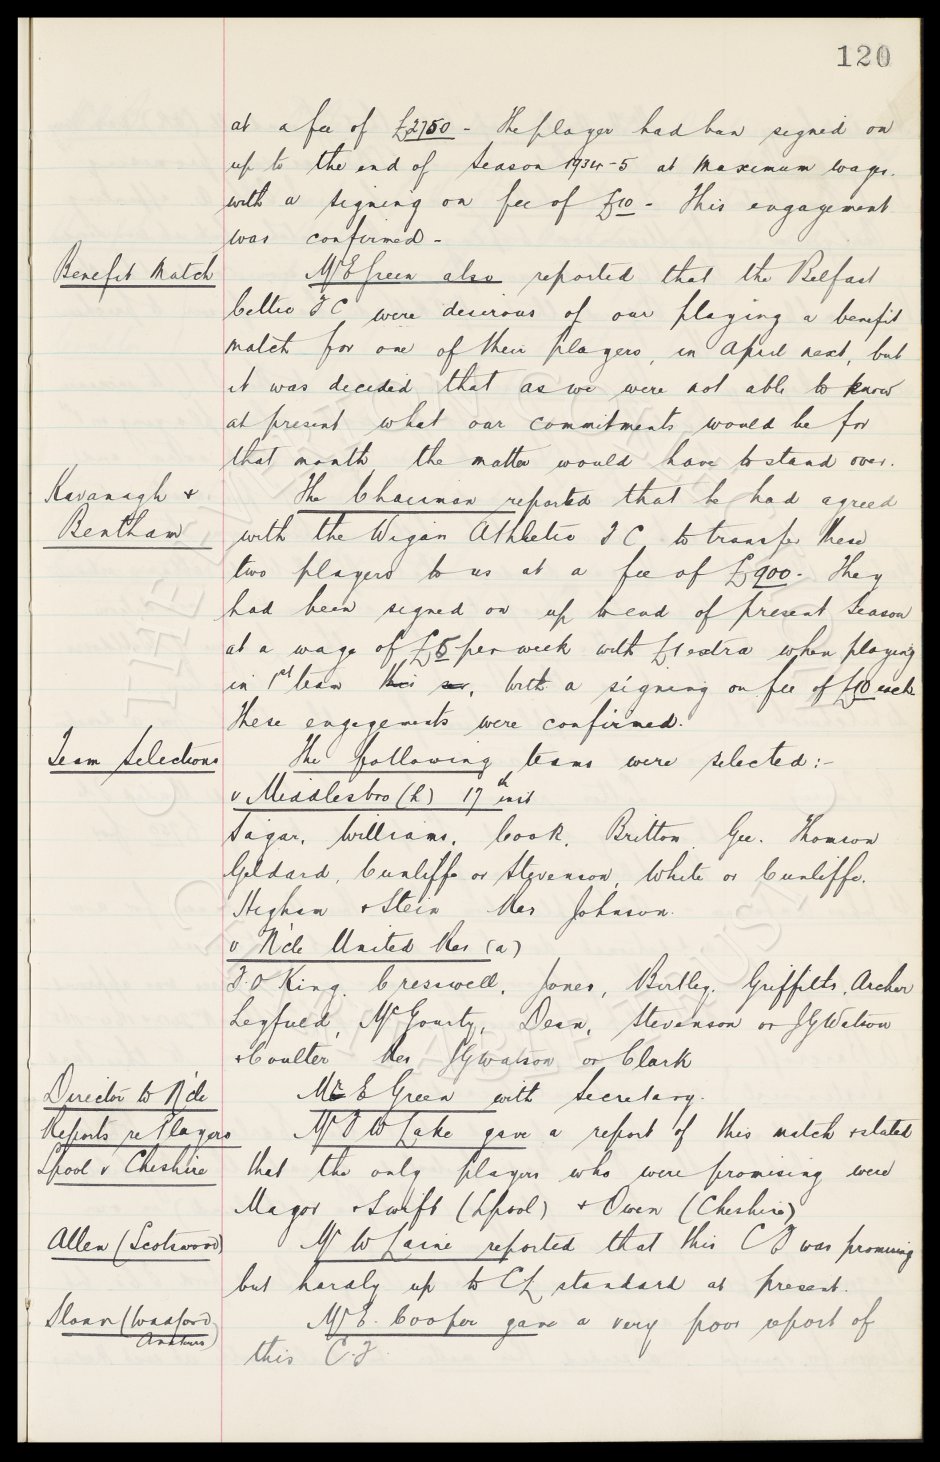 120
at a fee of £2750 - The player had been signed on
up to the end of Season 1934-5 at Maximum wages.
with a signing on fee of £10 - This engagement
was confirmed -
Benefit Match
Mr E Green also reported that the Belfast
Celtic F C were desirous of our playing a benefit
match for one of their players, in April next, but
it was decided that as we were not able to know
at present what our commitments would be for
that month the matter would have to stand over.
Kavanagh &
Bentham
The Chairman reported that he had agreed
with the Wigan Athletic F C to transfer these
two players to us at a fee of £900 - They
had been signed on up to end of present Season
at a wage of £5 per week with £1 extra when playing
in 1st team this , with a signing on fee of £10 each
These engagements were confirmed.
Team Selections
The following teams were selected :-
v Middlesbro (h) 17th inst
Sagar, Williams, Cook, Britton, Gee. Thomson
Geldard, Cunliffe or Stevenson, White or Cunliffe.
Higham & Stein Res Johnson.
v N'cle United Res (a)
F.O King. Cresswell, Jones, Birtley. Griffiths, Archer
Leyfield, McGourty, Dean, Stevenson or J G Watson
& Coulter Res J G Watson or Clark
Director to N'cle
Mr E Green with Secretary.
Reports re Players
L'pool v Cheshire
Mr T W Lake gave a report of this match & stated
that the only players who were promising were
Magor & Swift (L'pool) & Owen (Cheshire)
Allen (Scotswood)
Mr W Laine reported that this C F was promising
but hardly up to C L standard at present.
Sloan (Winsford
Mr E. Cooper gave a very poor report of
this C.F.